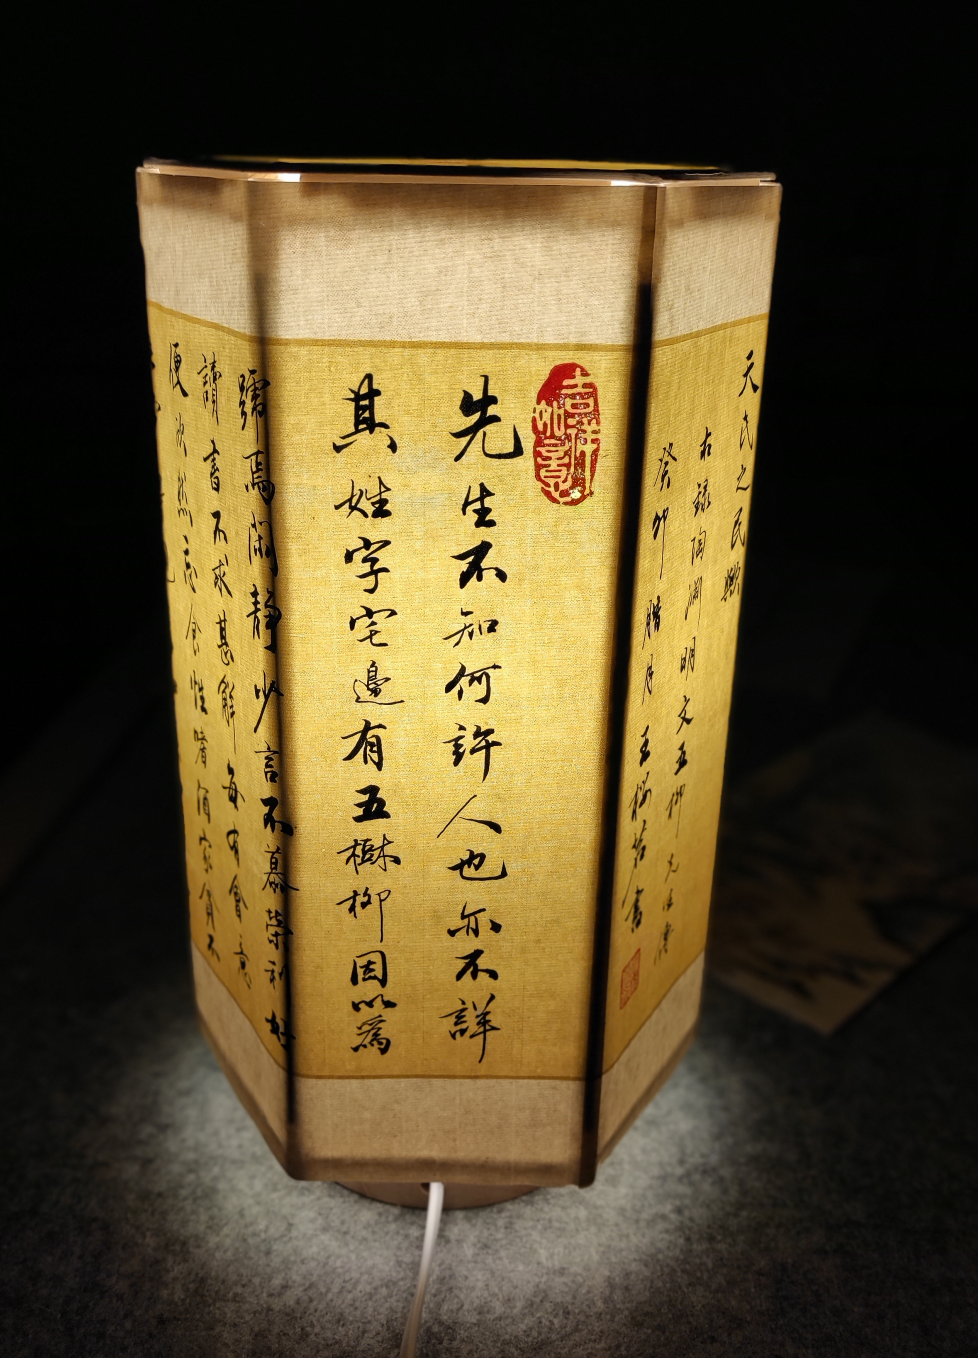 吉祥如意
先生不知何許人也亦不詳
其姓字宅邊有五樹柳因以為
號焉閑靜少言不慕榮利好
讀書不求甚解每有會意
便欣然忘食性嗜酒家貧不
天民之民歟
右錄陶淵明文五柳先生傳
癸卯腊月王
書